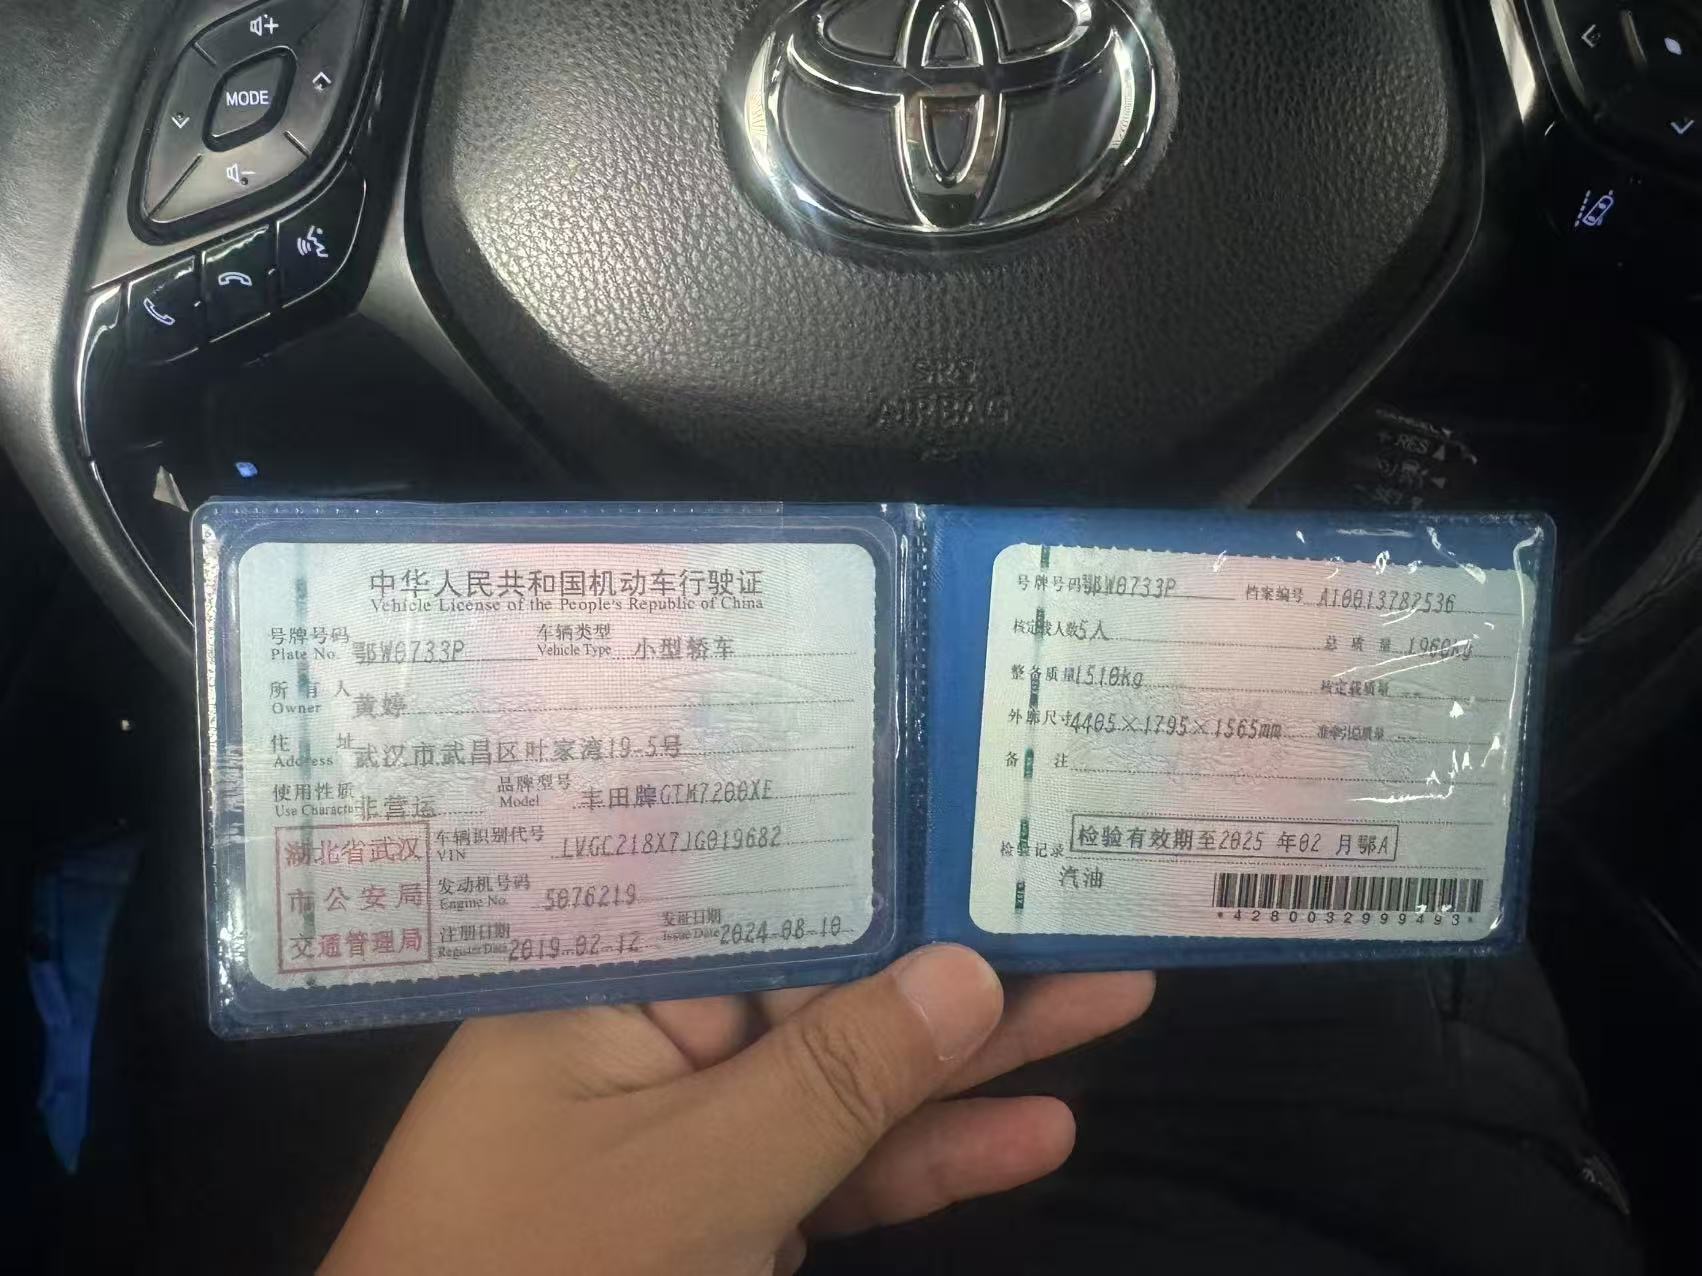 MODE
SRS
AIRBAG
RES
中华人民共和国机动车行驶证
Vehicle License of the People's Republic of China
号牌号码
Plate No.
鄂W0733P
车辆类型
Vehicle Type
小型轿车
所有人
Owner
黄婷
住址
Address
武汉市武昌区叶家湾19-5号
使用性质
Use Character
非营运
品牌型号
Model
丰田牌GTM7200XE
湖北省武汉
市公安局
交通管理局
车辆识别代号
VIN
LVGC218X7JG019682
发动机号码
Engine No.
5076219
注册日期
Register Date
2019-02-12
发证日期
Issue Date
2024-08-10
号牌号码
鄂W0733P
档案编号
A10013782536
核定载人数
5人
总质量
1960kg
整备质量
1510kg
核定载质量
--
外廓尺寸
4405×1795×1565mm
准牵引总质量
--
备注
检验记录
检验有效期至2025 年02 月鄂A
汽油
*4280032999493*